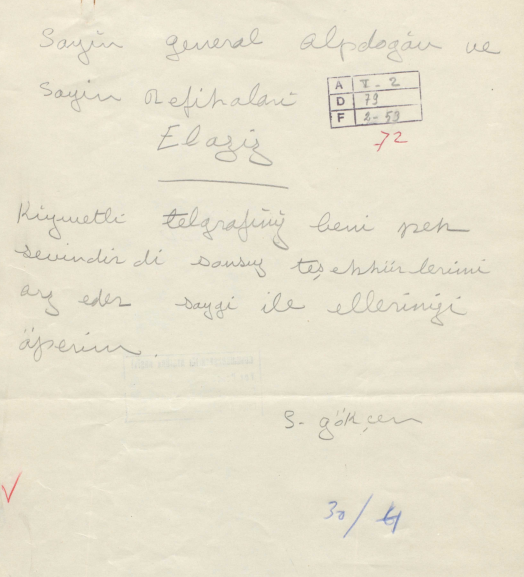 Sayin general alpdogan ve
Sayin Refikalari
A I - 2
D 79
F 2-59
72
Elaziz
Kiymetli telgrafiniz beni pek
sevindirdi sonsuz teşekkürlerimi
arz eder saygi ile ellerinizi
öperim.
S. gökçen
30/4